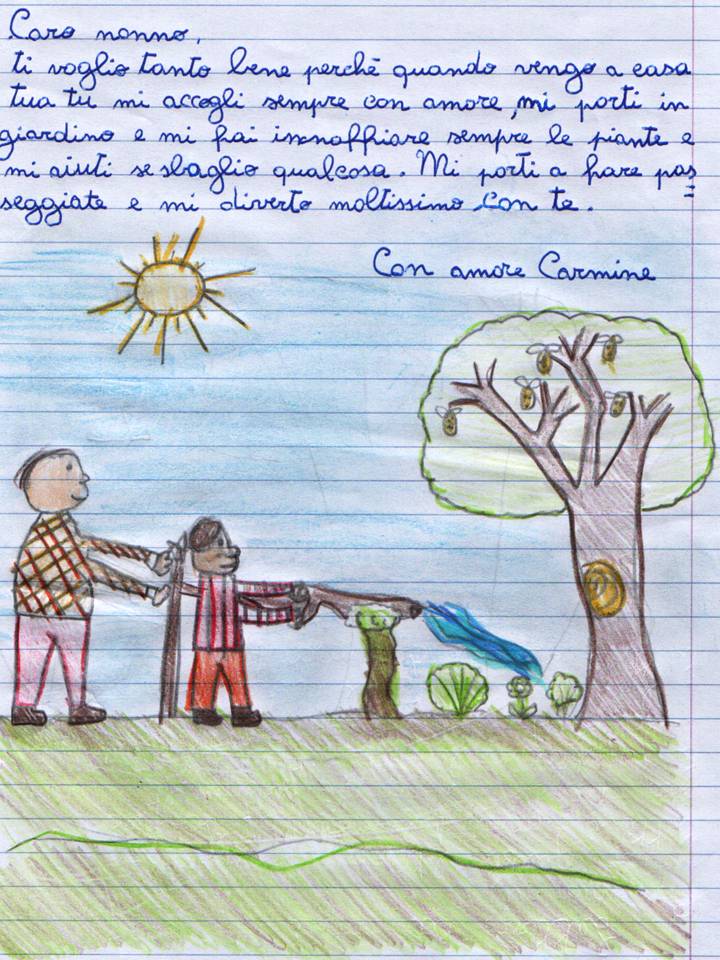 Caro nonno,
ti voglio tanto bene perchè quando vengo a casa
tua tu mi accogli sempre con amore, mi porti in
giardino e mi fai innaffiare sempre le piante e
mi aiuti se sbaglio qualcosa. Mi porti a fare pas
seggiate e mi diverto moltissimo con te.
Con amore Carmine